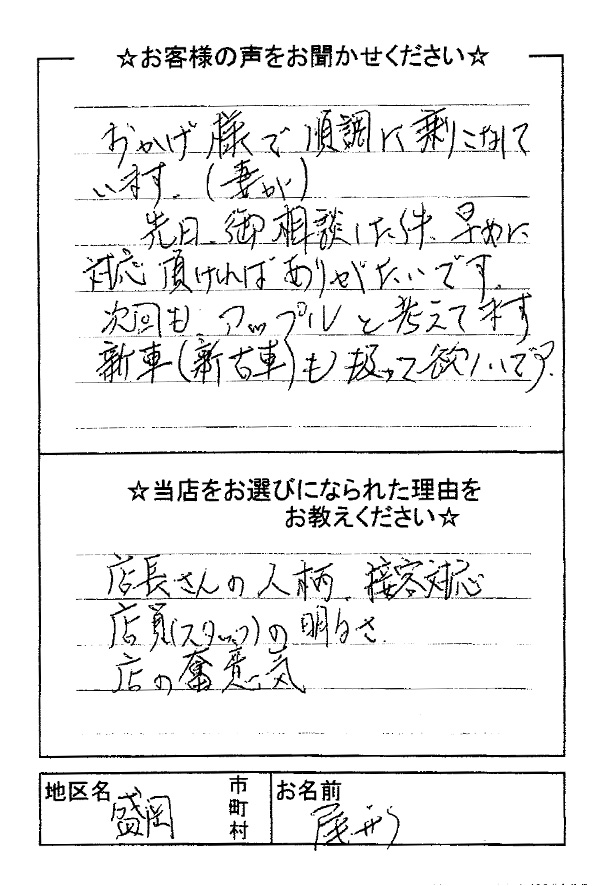 ☆お客様の声をお聞かせください☆
おかげ様で順調に乗りこなして
います。(妻が)
先日、御相談した件、早めに
対応頂ければありがたいです。
次回も、アップルと考えてます
新車(新古車)も扱って欲しいです。
☆当店をお選びになられた理由を
お教えください☆
店長さんの人柄、接客対応
店員(スタッフ)の明るさ
店の奮意気
地区名 盛岡 市町村 お名前 尾形